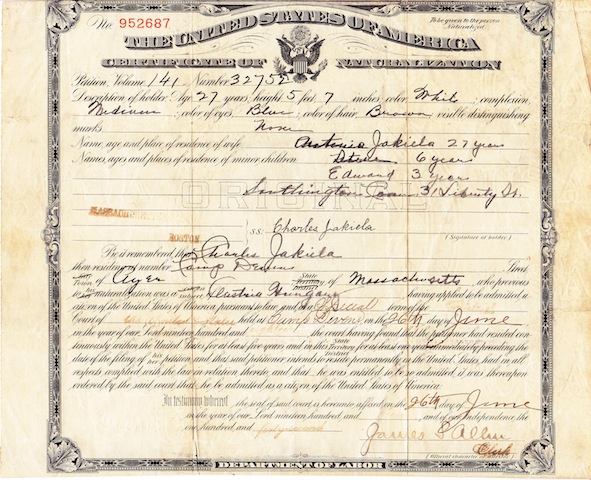 No. 952687
To be given to the person Naturalized.
THE UNITED STATES OF AMERICA
CERTIFICATE OF NATURALIZATION
Petition, Volume 141 Number 32752
Description of holder: Age, 27 years; height, 5 feet, 7 inches; color, White; complexion,
Medium; color of eyes, Blue; color of hair, Brown; visible distinguishing
marks, None
Name, age and place of residence of wife Antonia Jakiela 27 years
Names, ages and places of residence of minor children 6 years
Edward 3 years
Southington Conn 31 Liberty St.
ORIGINAL
MASSACHUSETTS
BOSTON
ss: Charles Jakiela
(Signature of holder)
Be it remembered, that Charles Jakiela
then residing at number Camp Devens Street
Town of Ayer State Territory District of Massachusetts, who previous
to his naturalization was a of Austria Hungary, having applied to be admitted a
citizen of the United States of America pursuant to law, and at a Special term of the
Court of held at Camp Devens, on the 26th day of June
in the year of our Lord nineteen hundred and the court having found that the petitioner had resided con-
tinuously within the United States for at least five years and in this State Territory District for at least one year immediately preceding the
date of the filing of his petition, and that said petitioner intends to reside permanently in the United States, had in all
respects complied with the law in relation thereto, and that he was entitled to be so admitted, it was thereupon
ordered by the said court that he be admitted as a citizen of the United States of America.
In testimony whereof the seal of said court is hereunto affixed on the 26th day of June
in the year of our Lord nineteen hundred and and of our Independence the
one hundred and forty second
James S Allen
Clerk
(Official character of attestor.)
DEPARTMENT OF LABOR